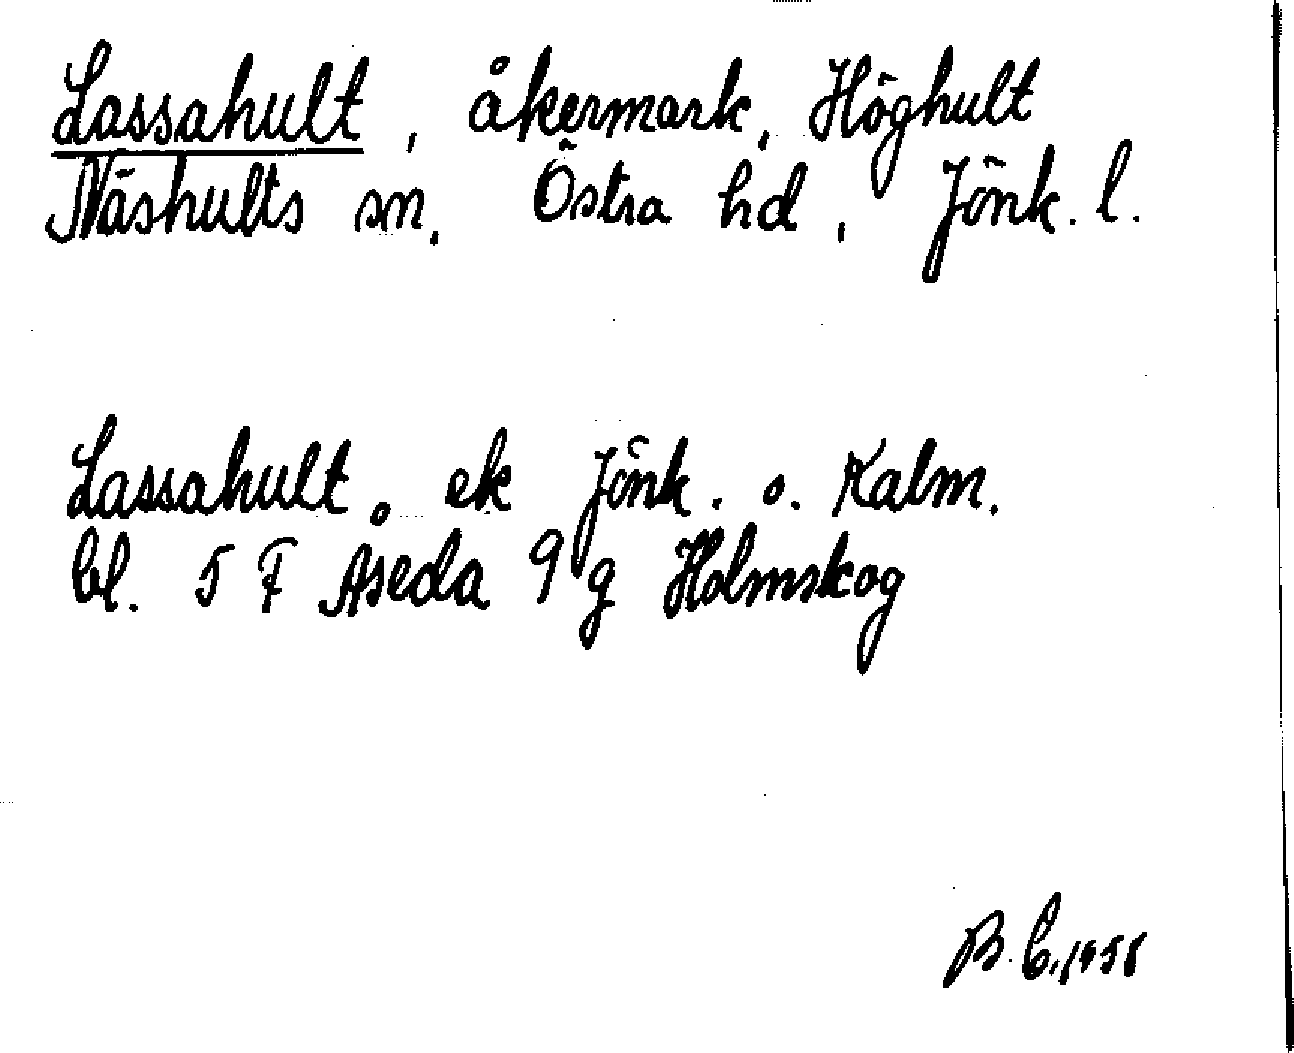 Lassahult, åkermark, Höghult
Näshults sn. Östra hd, Jönk. l.
Lassahult. ek Jönk. o. Kalm.
bl. 5 F Åseda 9 g Holmskog
B. C. 1958